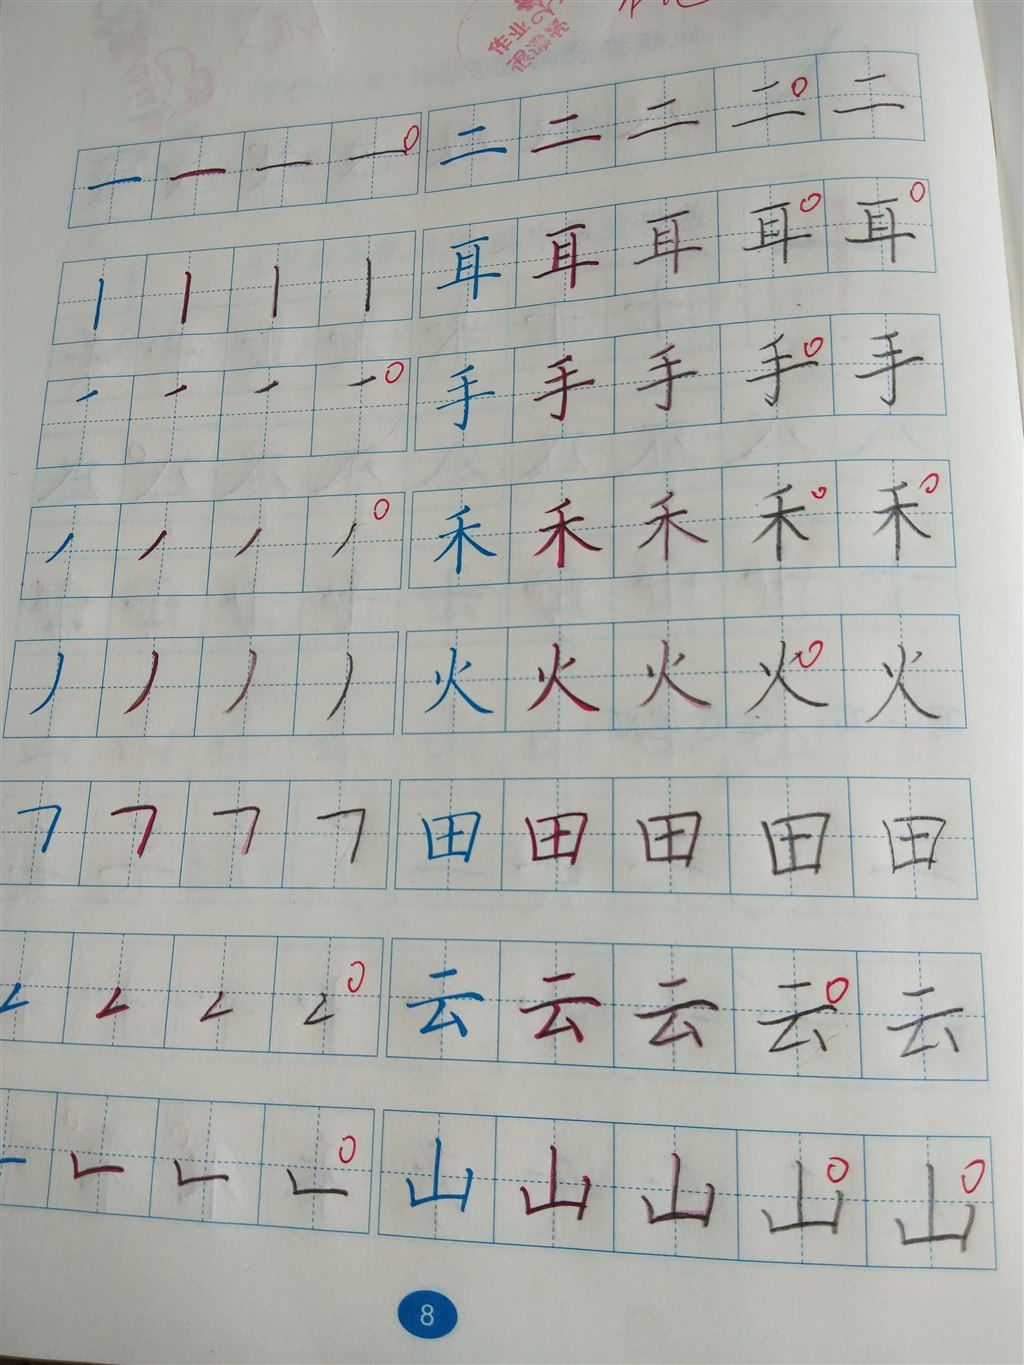 一 一 一 一 二 二 二 二 二
丨 丨 丨 丨 耳 耳 耳 耳 耳
手 手 手 手 手
禾 禾 禾 禾 禾
丿 丿 丿 丿 火 火 火 火 火
𠃍 𠃍 𠃍 𠃍 田 田 田 田 田
𠃋 𠃋 𠃋 𠃋 云 云 云 云 云
𠃊 𠃊 𠃊 𠃊 山 山 山 山 山
8